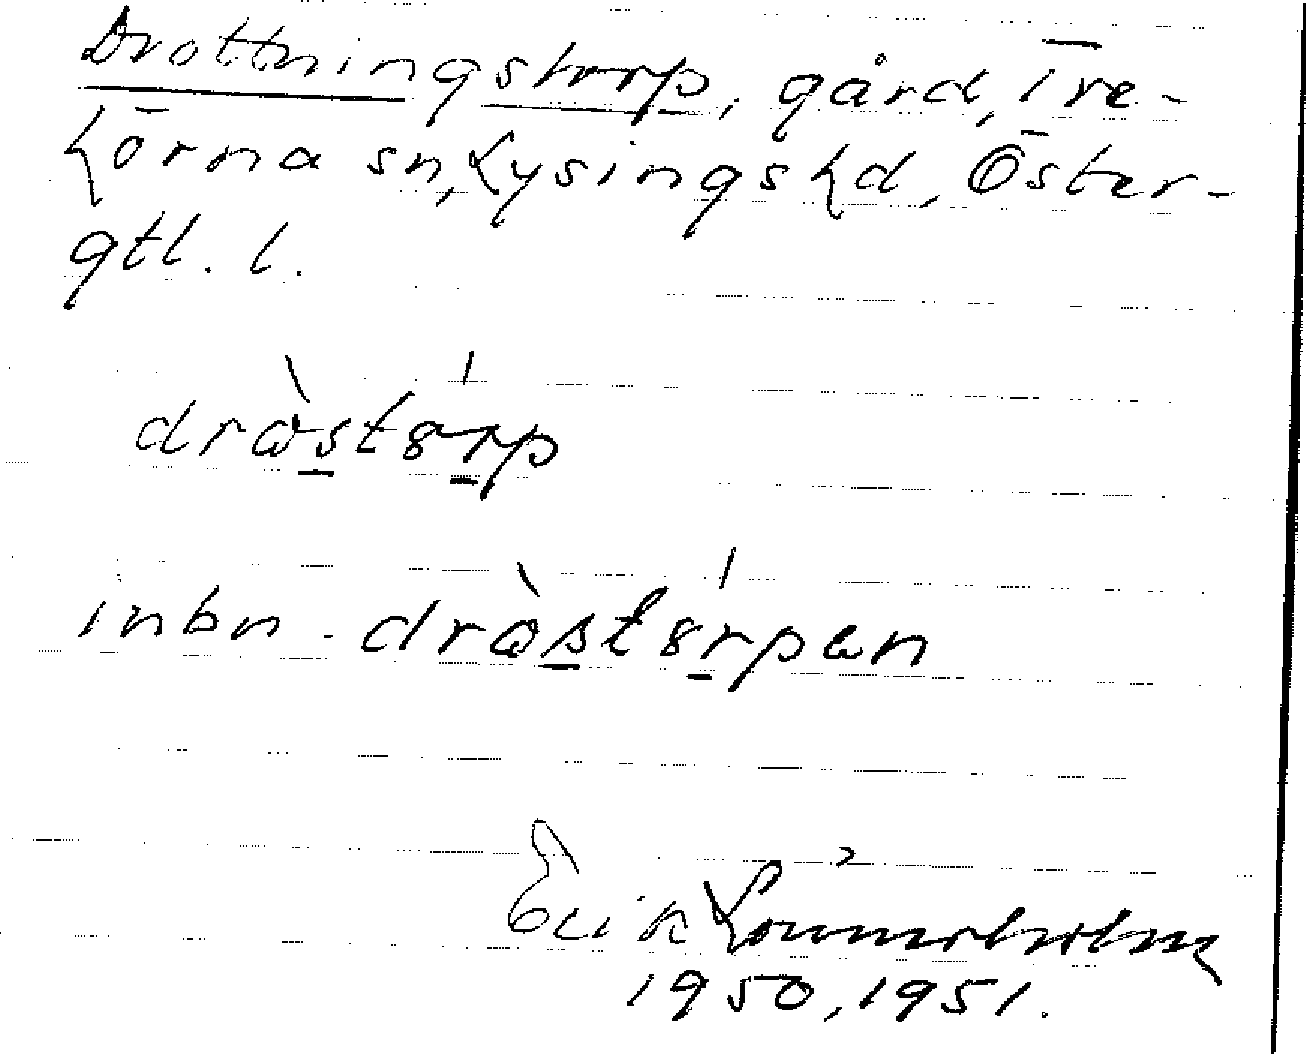 Drottningstorp, gård, Tre-
hörna sn, Lysings hd, Öster-
gtl. l.
dràstɵ́rp
inbn. dràstɵ́rpan
Erik Lönnerholm
1950, 1951.